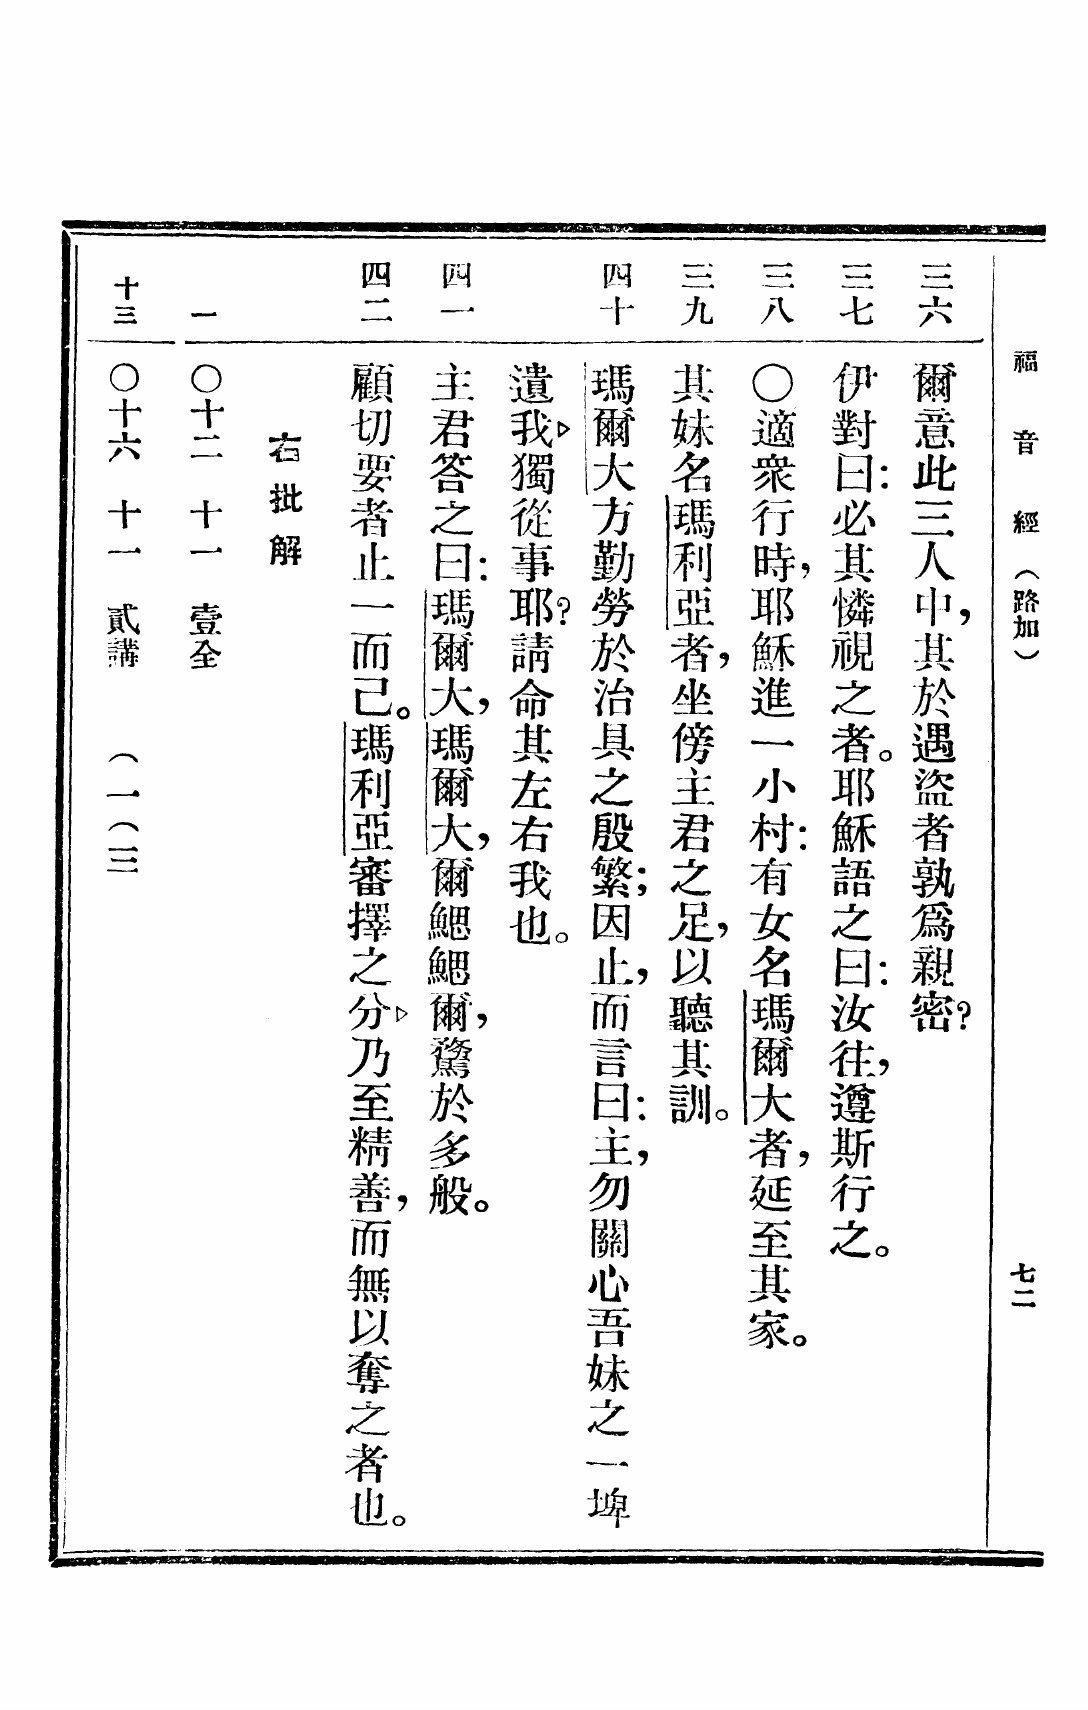 福音經（路加） 七二
三六 爾意此三人中，其於遇盜者孰爲親密？
三七 伊對曰：必其憐視之者。耶穌語之曰：汝往，遵斯行之。
三八 〇適衆行時，耶穌進一小村：有女名瑪爾大者，延至其家。
三九 其妹名瑪利亞者，坐傍主君之足，以聽其訓。
四十 瑪爾大方勤勞於治具之殷繁；因止，而言曰：主，勿關心吾妹之一埤
遺我▷獨從事耶？請命其左右我也。
四一 主君答之曰：瑪爾大，瑪爾大，爾鰓鰓爾，驚於多般。
四二 顧切要者止一而己。瑪利亞審擇之分▷乃至精善，而無以奪之者也。
右批解
一 〇十二 十一 壹全
十三 〇十六 十一 貳講 （一（三